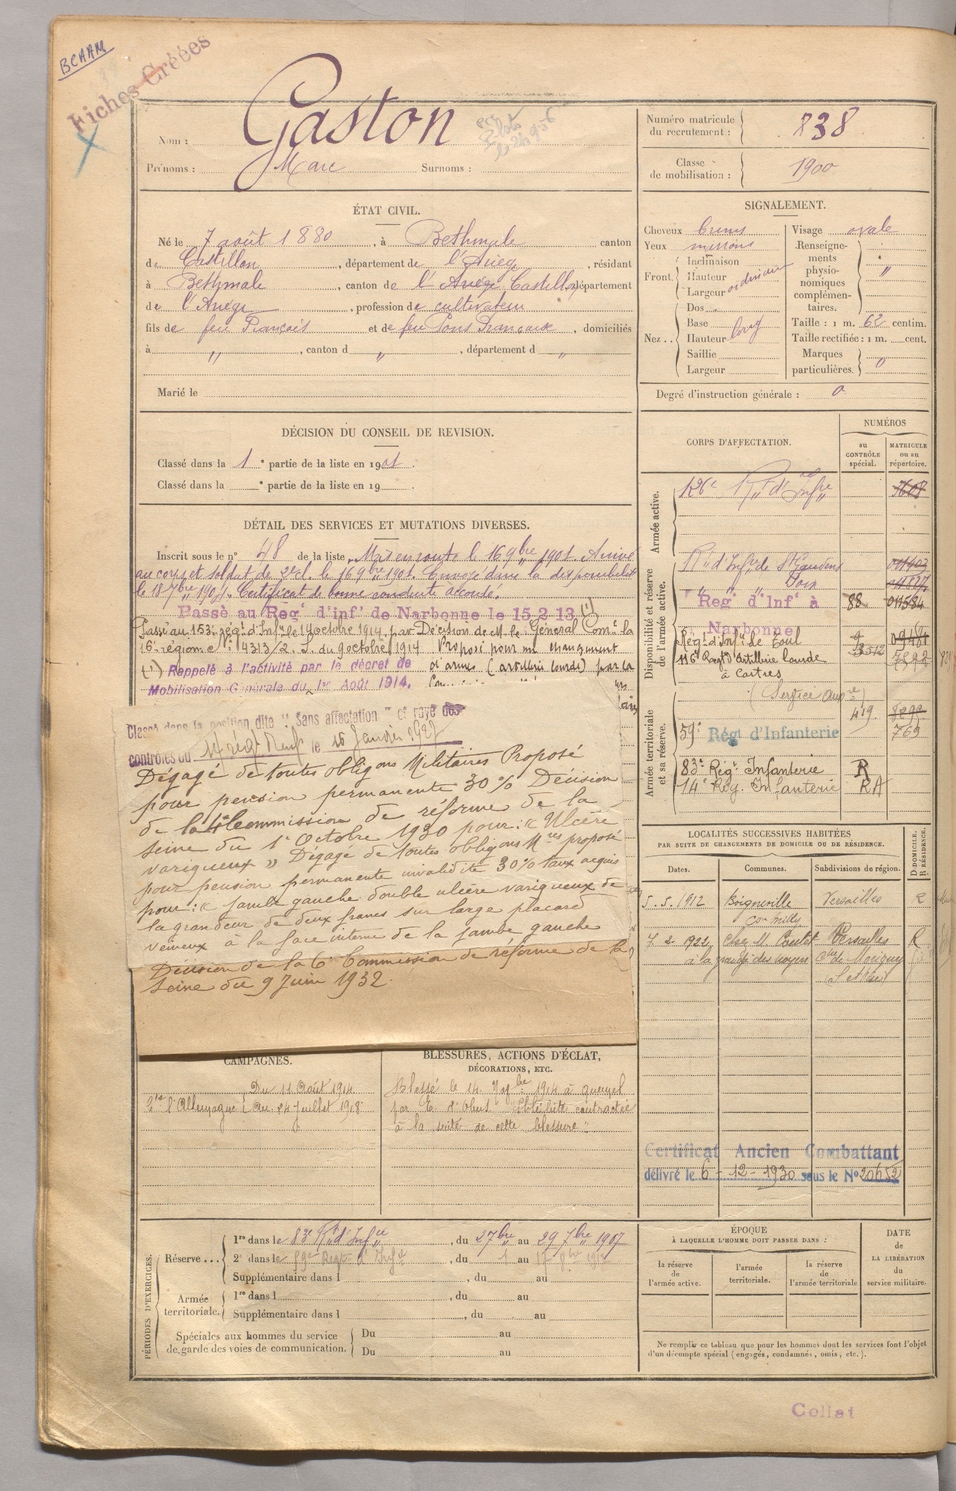 BCAAM
Fiches Créées
Nom : Gaston
Prénoms : Marc Surnoms :
Numéro matricule du recrutement : 838
Classe de mobilisation : 1900
ÉTAT CIVIL.
Né le 7 août 1880, à Bethmale canton
de Castillon, département de l'Ariège, résidant
à Bethmale, canton de l'Ariège Castillon département
de l'Ariège, profession de cultivateur
fils de feu François et de feu Pons Françoise, domiciliés
à " , canton d " , département d "
Marié le
SIGNALEMENT.
Cheveux bruns
Yeux marrons
Front Inclinaison
Hauteur
Largeur ordinaire
Nez Dos
Base
Hauteur long
Saillie
Largeur
Visage ovale
Renseignements physionomiques complémentaires. "
Taille : 1 m. 62 centim.
Taille rectifiée : 1 m. cent.
Marques particulières. "
Degré d'instruction générale : 0
DÉCISION DU CONSEIL DE REVISION.
Classé dans la 1e partie de la liste en 1901.
Classé dans la e partie de la liste en 19
DÉTAIL DES SERVICES ET MUTATIONS DIVERSES.
Inscrit sous le n° 48 de la liste. Mis en route le 16 9bre 1901. Arrivé
au corps et soldat de 2e cl. le 16 9bre 1901. Envoyé dans la disponibilité
le 18 7bre 1904. Certificat de bonne conduite accordé.
Passé au Reg' d'inf' de Narbonne le 15.2.13. (1)
Passé au 153e rég't d'Inf'ie le 19 octobre 1914 par Décision de M. le Général Com't la
16e région N° 4313/2. S. du 9 octobre 1914 Proposé pour un changement
(1) Rappelé à l'activité par le décret de d'arme (artillerie lourde) par la
Mobilisation Générale du 1er Août 1914.
Classé dans la position dite "Sans affectation" et rayé des
contrôles du 14 régt d'Inf le 15 Janvier 1927
Dégagé de toutes obligons Militaires Proposé
pour pension permanente 30% Décision
de la 4e Commission de réforme de la
Seine du 1er Octobre 1930 pour : « Ulcère
variqueux » Dégagé de toutes obligons Mres proposé
pour pension permanente invalidité 30% taux acquis
pour : « jambe gauche double ulcère variqueux de
la grandeur de deux francs sur large placard
veineux à la face interne de la jambe gauche
Décision de la 6e Commission de réforme de la
Seine du 9 Juin 1932.
CORPS D'AFFECTATION.
NUMÉROS
au CONTRÔLE spécial.
MATRICULE ou au répertoire.
Armée active.
126e Rt d'Infre
Disponibilité et réserve de l'armée active.
Rt d'Infie de St Gaudens
" " " Foix
Reg' d'Inf' à Narbonne 88
Régt d'Infie de Toul
116e Régt d'Artillerie Lourde à Castres
(Service Auxre)
Armée territoriale et sa réserve.
59e Régt d'Infanterie 419 769
83e Rég't Infanterie R
14e Rég. Infanterie RA
LOCALITÉS SUCCESSIVES HABITÉES
PAR SUITE DE CHANGEMENTS DE DOMICILE OU DE RÉSIDENCE.
Dates. Communes. Subdivisions de région. D. DOMICILE. R. RÉSIDENCE.
5.5.1912 Boigneville Versailles R
7.2.1922 Chez M. Versailles R
CAMPAGNES.
Du 11 Août 1914
l'Allemagne Au 24 Juillet 1918
BLESSURES, ACTIONS D'ÉCLAT,
DÉCORATIONS, ETC.
Blessé le 14 1914 à
par E. d'obus
à la suite de cette blessure.
Certificat Ancien Combattant
délivré le 6-12-1930 sous le N° 20652
PÉRIODES D'EXERCICES.
Réserve ... 1re dans le 83e Rt d'Infie, du 2 7bre au 29 7bre 1907
2e dans le 59e Régt d'Infie, du 1 au 17
Supplémentaire dans l , du au
Armée territoriale. 1re dans l , du au
Supplémentaire dans l , du au
Spéciales aux hommes du service Du au
de garde des voies de communication. Du au
ÉPOQUE
À LAQUELLE L'HOMME DOIT PASSER DANS :
la réserve de l'armée active.
l'armée territoriale.
la réserve de l'armée territoriale
DATE de LA LIBÉRATION du service militaire.
Ne remplir ce tableau que pour les hommes dont les services font l'objet
d'un décompte spécial (engagés, condamnés, omis, etc.).
Collat